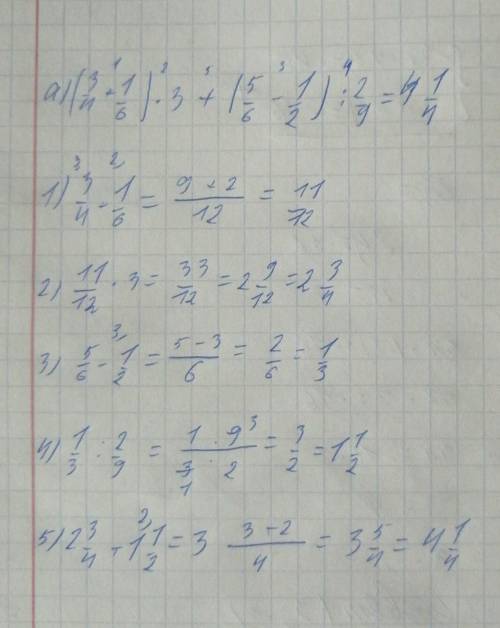 а) (3/4 + 1/6) · 3 + (5/6 - 1/2) : 2/9 = 4 1/4
1) 3/4 + 1/6 = (9 + 2)/12 = 11/12
2) 11/12 · 3 = 33/12 = 2 9/12 = 2 3/4
3) 5/6 - 1/2 = (5 - 3)/6 = 2/6 = 1/3
4) 1/3 : 2/9 = (1 · 9)/(3 · 2) = 3/2 = 1 1/2
5) 2 3/4 + 1 1/2 = 3 (3 + 2)/4 = 3 5/4 = 4 1/4